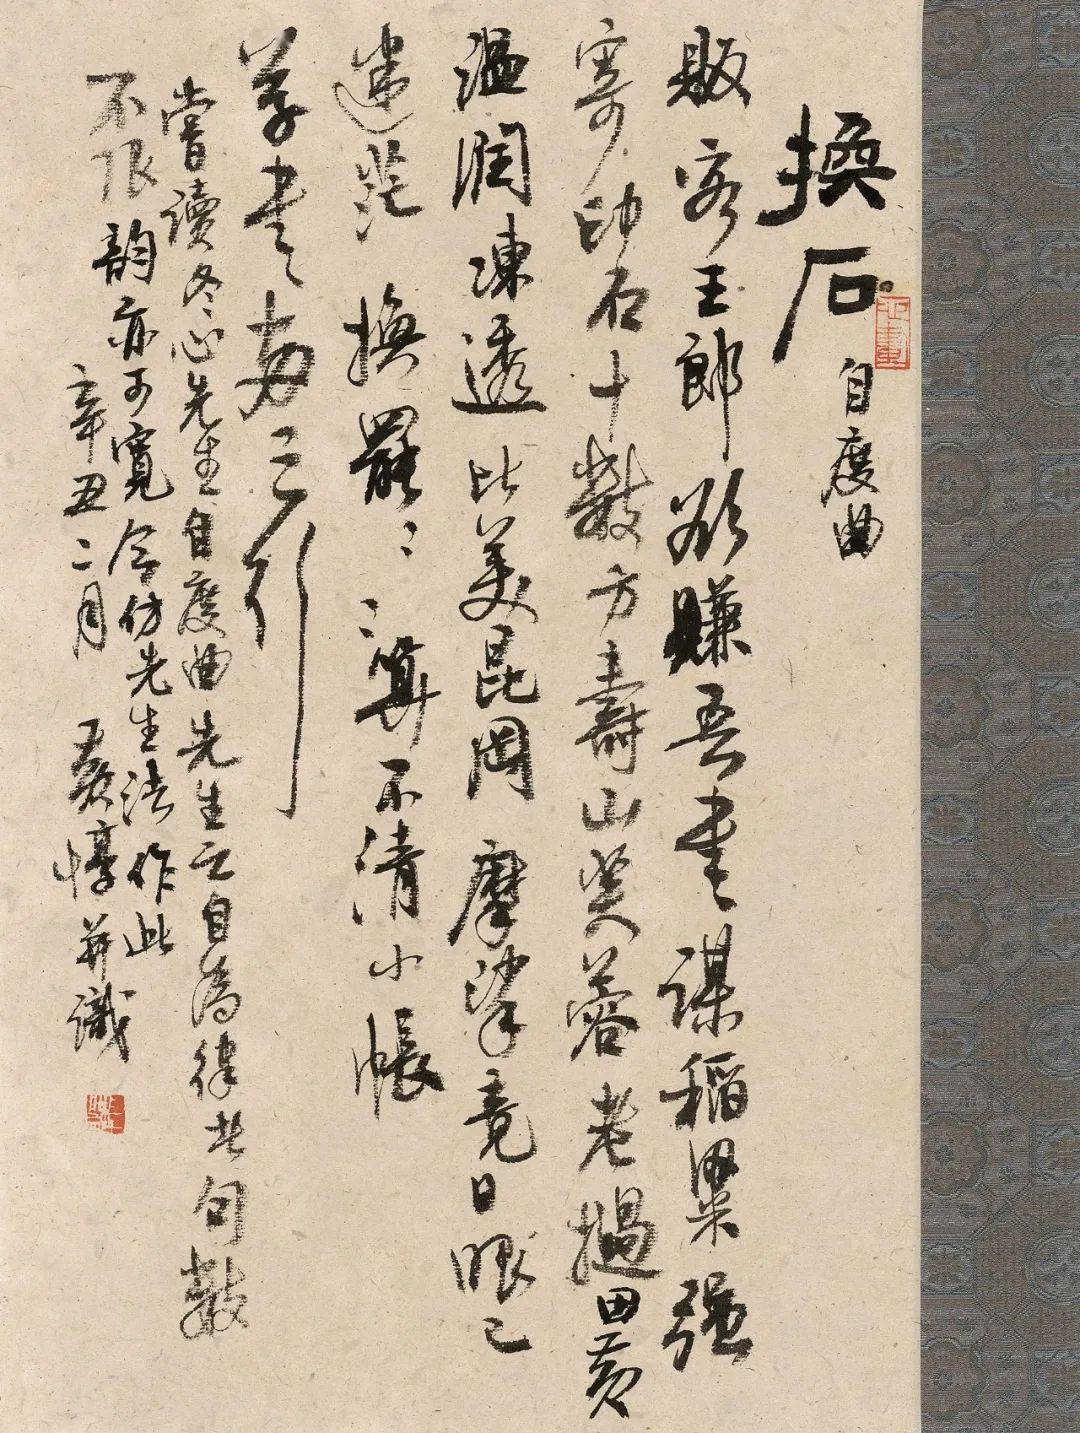 換石 自度曲
販客王郎欲賺吾書謀稻粱強
寄印石十數方壽山芙蓉老撾田黃
溫潤凍透比美昆岡摩挲竟日眼已
迷茫換羅〻〻算不清小帳
草書為之引
嘗讀冬心先生自度曲先生云自為律其句數
不限韻亦可寬今仿先生法作此
辛丑二月 黃惇並識